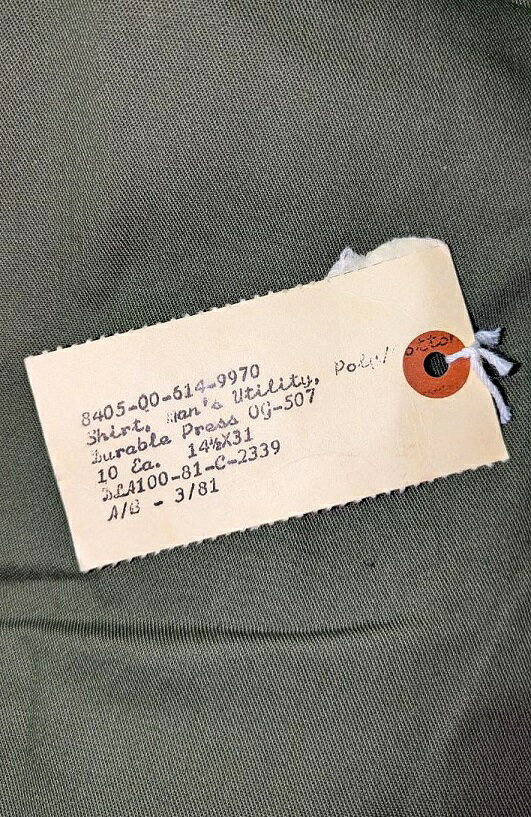 8405-00-614-9970
Shirt, Man's Utility, Poly/
Durable Press OG-507
10 Ea. 14½X31
DLA100-81-C-2339
A/B - 3/81